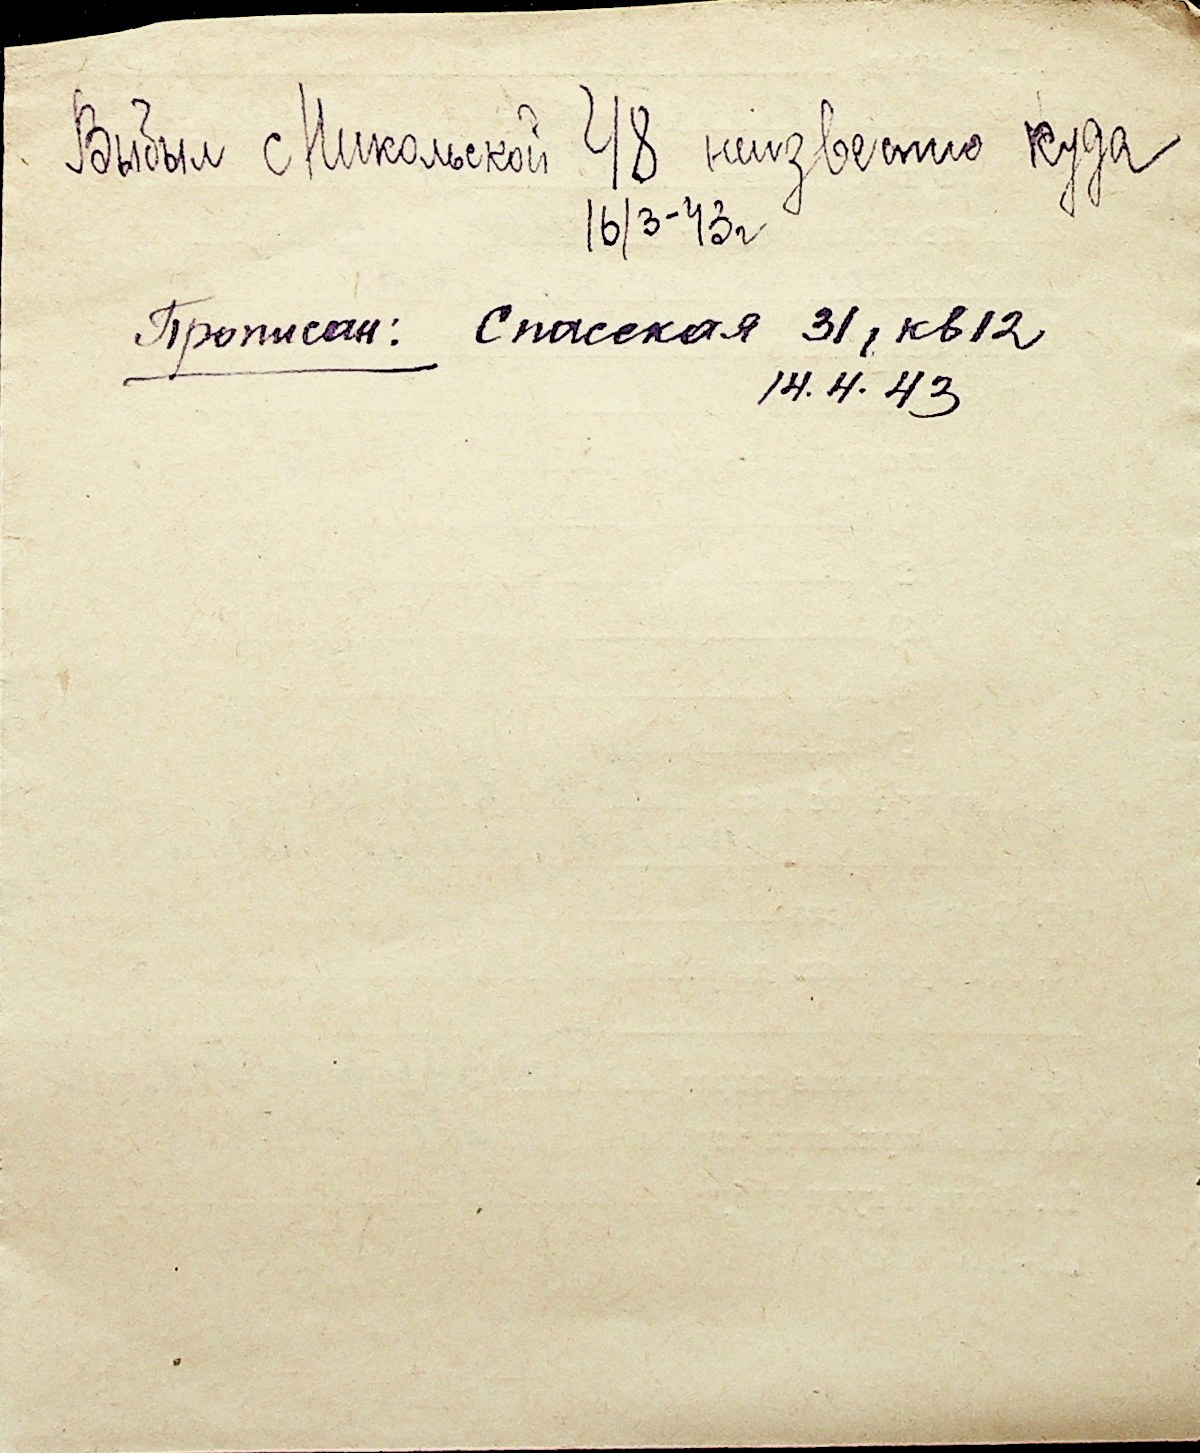 Выбыл с Никольской 48 неизвестно куда
16/3-43г
Прописан: Спасская 31, кв 12
14.4.43